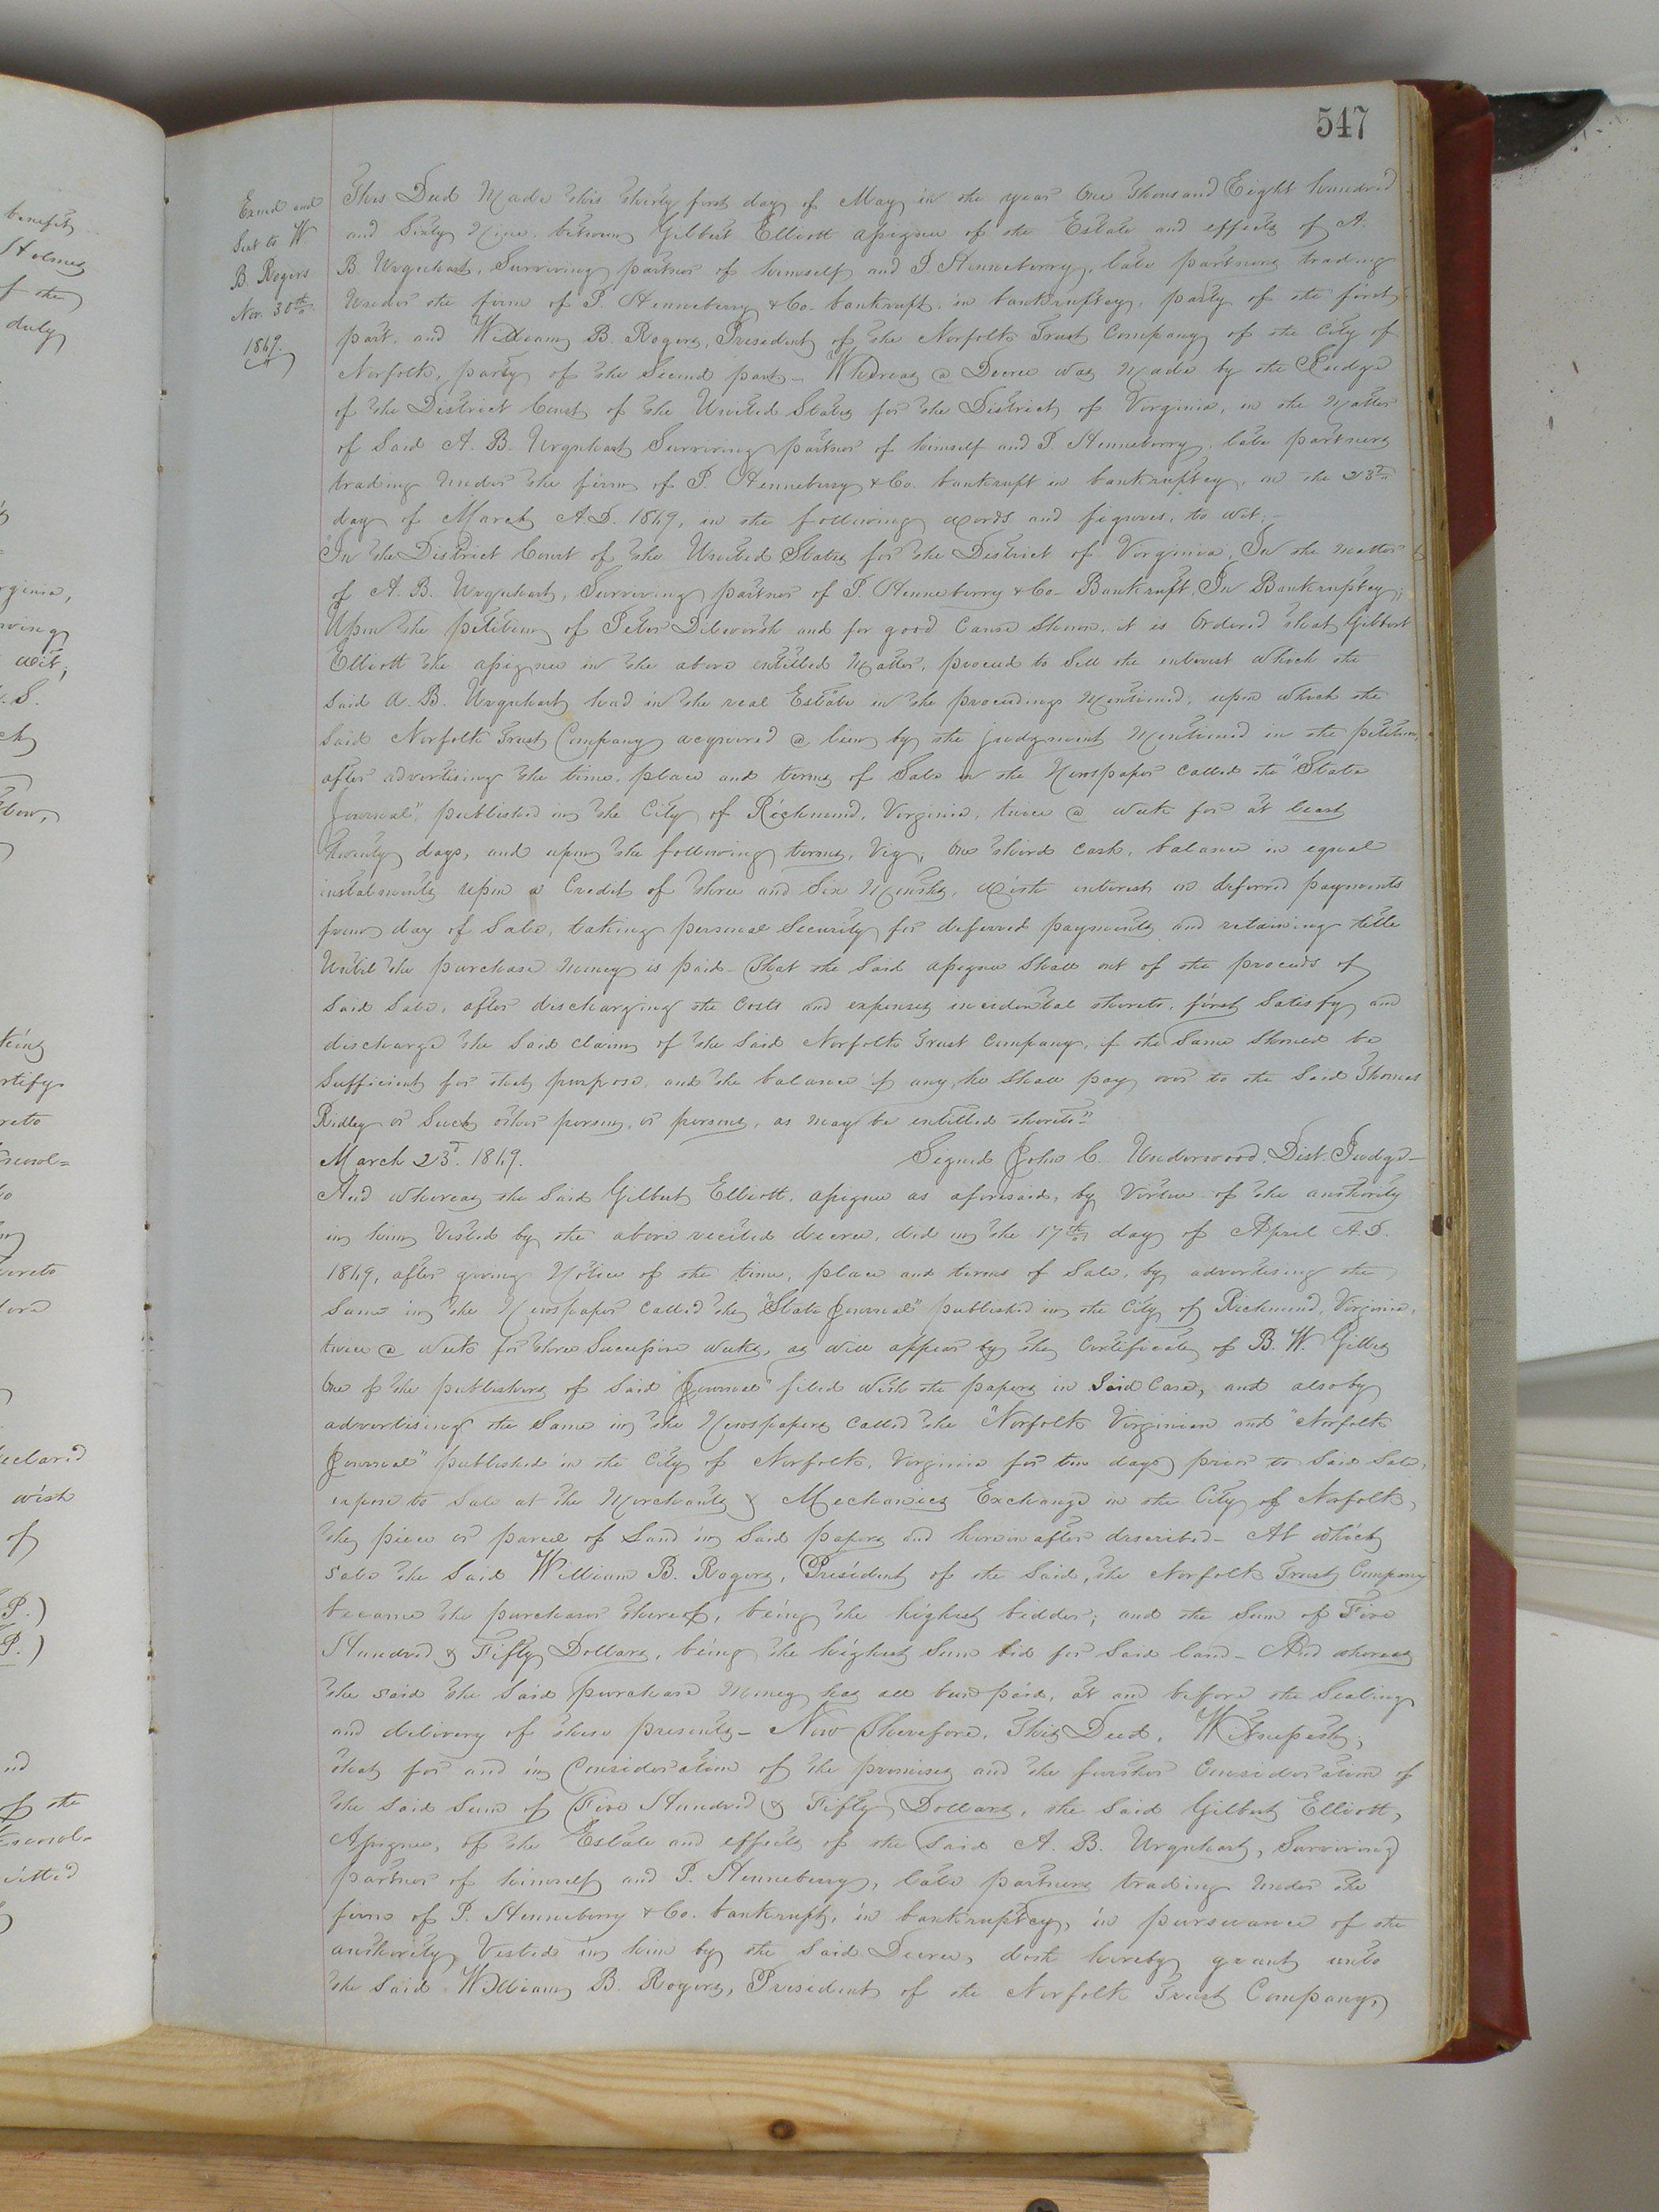 547
Exmd and
Sent to W
B. Rogers
Nov. 30th
1869.
This Deed Made this thirty first day of May in the year One Thousand Eight hundred
and Sixty Nine, between Gilbert Elliott assignee of the Estate and effects of A.
B. Urquhart, Surviving partner of himself and P. Henneberry, late partners trading
Under the firm of P. Henneberry & Co. bankrupt, in bankruptcy, party of the first
part, and William B. Rogers, President of the Norfolk Trust Company of the City of
Norfolk, party of the Second part – Whereas a Decree was Made by the Judge
of the District Court of the United States for the District of Virginia, in the Matter
of Said A. B. Urquhart Surviving partner of himself and P. Henneberry, late partners
trading Under the firm of P. Henneberry & Co. bankrupt in bankruptcy, on the 23rd
day of March A.D. 1869, in the following words and figures, to wit:–
"In the District Court of the United States for the District of Virginia, In the matter
of A. B. Urquhart, Surviving partner of P. Henneberry & Co– Bankrupt, In Bankruptcy;
Upon the petition of Peter Dilworth and for good Cause Shown, it is Ordered that Gilbert
Elliott the assignee in the above entitled Matter, proceed to Sell the interest which the
Said A. B. Urquhart had in the real Estate in the proceedings Mentioned, upon which the
Said Norfolk Trust Company acquired a lien by the judgment Mentioned in the petition,
after advertising the time, place and terms of Sale in the Newspaper Called the "State
Journal", published in the City of Richmond, Virginia, twice a week for at least
twenty days, and upon the following terms, Viz, One third Cash, balance in equal
instalments upon a Credit of three and Six Months, with interest on deferred payments
from day of Sale, taking personal Security for deferred payments and retaining title
Until the purchase money is paid– That the Said assignee Shall out of the proceeds of
Said Sale, after discharging the Costs and expenses incidental thereto, first Satisfy and
discharge the Said claim of the Said Norfolk Trust Company, if the Same Should be
Sufficient for that purpose, and the balance if any, he Shall pay over to the Said Thomas
Ridley or Such other person, or persons, as may be entitled thereto"
March 23d. 1869. Signed John C. Underwood, Dist. Judge–
And whereas the Said Gilbert Elliott, assignee as aforesaid, by Virtue of the authority
in him Vested by the above recited decree, did on the 17th day of April A.D.
1869, after giving Notice of the time, place and terms of Sale, by advertising the
Same in the Newspaper Called the "State Journal" published in the City of Richmond, Virginia,
twice a week for three Successive weeks, as will appear by the Certificate of B. W. Gillis
One of the publishers of Said "Journal" filed with the papers in Said Case, and also by
advertising the Same in the Newspapers Called the "Norfolk Virginian and "Norfolk
Journal" published in the City of Norfolk, Virginia for ten days prior to Said Sale,
expose to Sale at the Merchants & Mechanics Exchange in the City of Norfolk,
the piece or parcel of Land in Said papers and hereinafter described– At which
Sale the Said William B. Rogers, President of the Said, the Norfolk Trust Company
became the purchaser thereof, being the highest bidder; and the Sum of Five
Hundred & Fifty Dollars, being the highest Sum bid for Said land– And whereas
the said the Said purchase Money has all been paid, at and before the Sealing
and delivery of these presents– Now Therefore, This Deed, Witnesseth;
that for and in Consideration of the premises and the further Consideration of
the Said Sum of Five Hundred & Fifty Dollars, the Said Gilbert Elliott,
Assignee, of the Estate and effects of the Said A. B. Urquhart, Surviving
partner of himself and P. Henneberry, late partners trading Under the
firm of P. Henneberry & Co. bankrupt, in bankruptcy, in pursuance of the
authority Vested in him by the Said Decree, doth hereby grant unto
the Said William B. Rogers, President of the Norfolk Trust Company,